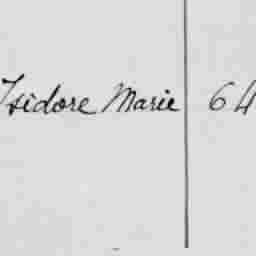 Isidore Marie 64